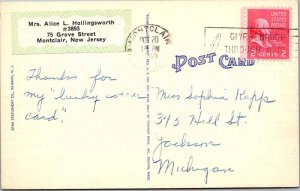 Mrs. Alice L. Hollingsworth
75 Grove Street
Montclair, New Jersey
MONTCLAIR
20
PM
GIVE ENOUGH
UNITED STATES POSTAGE
2 CENTS 2
POST CARD
Thanks for
my "lucky
card."
Miss Sophia Kupp
343 Hill St.
Jackson
Michigan